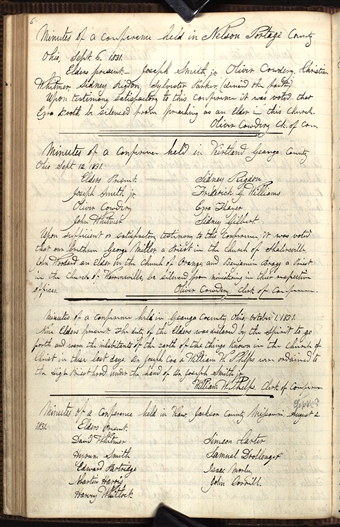 6
Minutes of a conference held in Nelson Portage County
Ohio, Sept 6, 1831.
Elders present Joseph Smith jr. Oliver Cowdery, Christian
Whitmer, Sidney Rigdon, Sylvester Parker, 
Upon testimony satisfactory to this Conference it was voted that
Ezra Booth be silenced from preaching as an Elder in this Church.
Oliver Cowdery, Ck. of Con.
Minutes of a conference held in Kirtland Geauga County
Ohio Sept 12, 1831.
Elders Present Sidney Rigdon
Joseph Smith jr. Frederick G. Williams
Oliver Cowdery Ezra Thayer
John Whitmer Sidney Gilbert
Upon sufficient & satisfactory testimony to the Conference it was voted
that our brethren George Miller a Priest in the Church of Shalersville
an Elder in the Church of Orange and Benjamin Bragg a Priest
in the Church of Warrensville be silenced from ministering in their respective
offices. Oliver Cowdery Clerk of Conference.
Minutes of a conference held in Geauga County, Ohio October 1, 1831.
Nine Elders present. The duty of the Elders was declared by the spirit to go
forth and warn the inhabitants of the earth of the things known in the Church of
Christ in these last days. Br. Joseph Coe & William W. Phelps were ordained to
the High Priesthood under the hand of Br. Joseph Smith jr.
William W. Phelps, Clerk of Conference
Minutes of a conference held in Kaw Jackson County Missouri August 2
1831. Elders Present
David Whitmer Simeon Carter
Hyrum Smith
Edward Partridge Isaac Morley
Martin Harris John Corrill
Harvey Whitlock